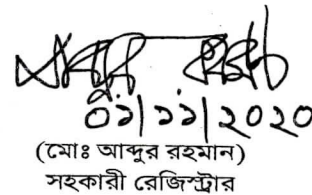 ০১|১১|২০২০
(মোঃ আব্দুর রহমান)
সহকারী রেজিস্ট্রার